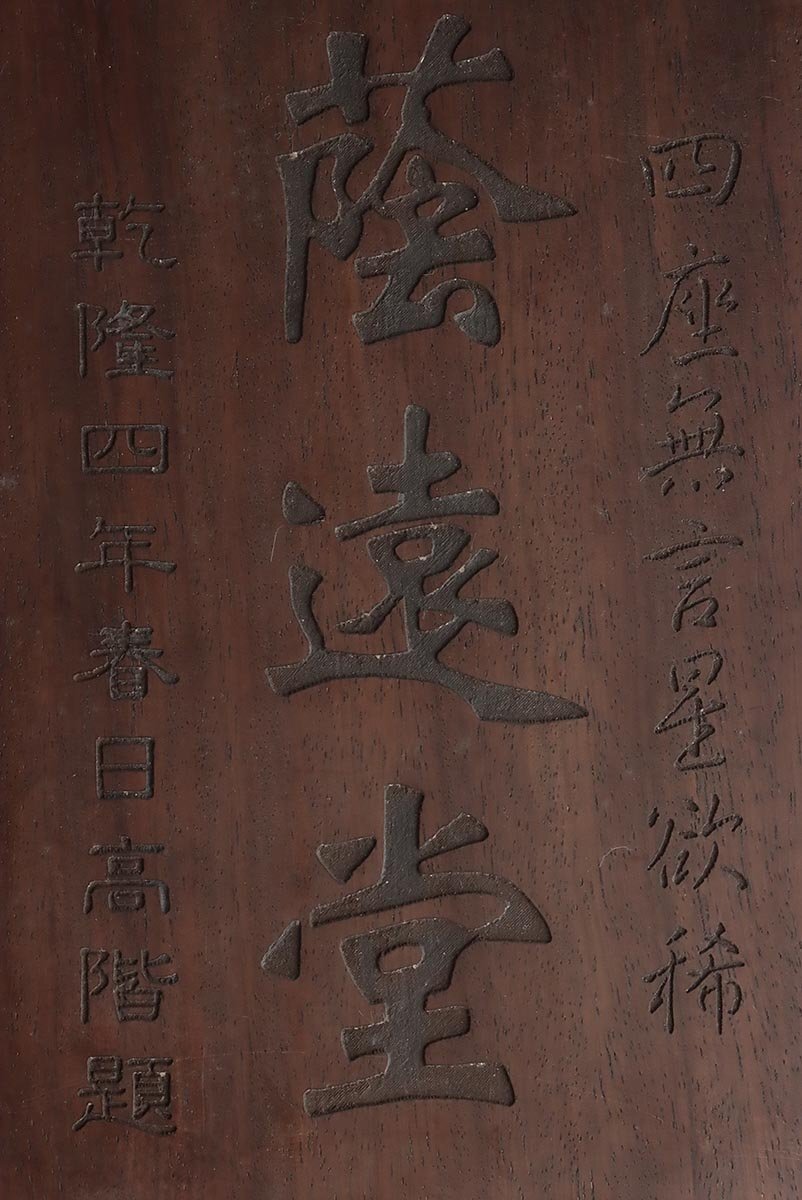 四座無言星欲稀
蔭遠堂
乾隆四年春日高階題